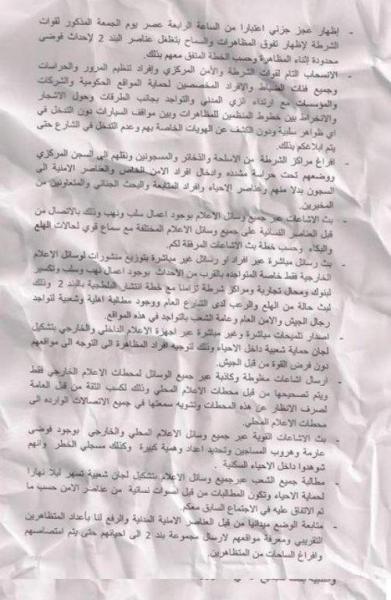 - إظهار عجز جزئي اعتبارا من الساعة الرابعة عصر يوم الجمعة المذكور لقوات
الشرطة لإظهار تفوق المظاهرات والسماح بتغلغل عناصر البند 2 لإحداث فوضى
محدودة إثناء المظاهرة وحسب الخطة المتفق معهم بذلك.
- الانسحاب التام لقوات الشرطة والأمن المركزي وإفراد تنظيم المرور والحراسات
وجميع فئات الضباط والإفراد المخصصين لحماية المواقع الحكومية والشركات
والمؤسسات مع ارتداء الزي المدني والتواجد بجانب الطرقات وحول الأشجار
والانخراط بين خطوط المنظمين للمظاهرات وبين مواقف السيارات دون التدخل في
اي ظواهر سلبية ودون الكشف عن الهويات الخاصة بهم وعدم التدخل في الشارع حتى
يتم ابلاغكم بذلك.
- افراغ مراكز الشرطة من الاسلحة والذخائر والمسجونين ونقلهم الى السجن المركزي
ووضعهم تحت حراسة مشدده وادخال افراد الامن الخاص والعناصر الامنية الى
السجون بدلا منهم وعناصر الاحياء وإفراد المتابعة والبحث الجنائي والمتعاونين من
المخبرين.
- بث الاشاعات عبر جميع وسائل الاعلام بوجود اعمال سلب ونهب وذلك بالاتصال من
قبل العناصر النسائية على جميع وسائل الاعلام المختلفة مع سماع قوي لحالات الهلع
والبكاء وحسب خطة بث الاشاعات المرفقة لكم.
- بث رسائل مباشرة عبر افراد او رسائل غير مباشرة بتوزيع منشورات لوسائل الاعلام
الخارجية فقط خاصة المتواجده بالقرب من الأحداث بوجود اعمال نهب وسلب وتكسير
لبنوك ومحال تجارية ومراكز شرطة تزامنا مع خطة انتشار البلطجية بالبند 2 وذلك
لبث حالة من الهلع والرعب لدى الشارع العام ووجود مطالبة اهلية وشعبية لتواجد
رجال الجيش والامن العام وعامة الشعب بالتواجد في هذه المواقع.
- اصدار تلميحات مباشرة وغير مباشرة عبر اجهزة الاعلام الداخلي والخارجي بتشكيل
لجان حماية شعبية داخل الاحياء وذلك لتوجيه افراد المظاهرة الى التوجه الى مواقعهم
دون فرض القوة من قبل الجيش.
- ارسال اشاعات مغلوطة وكاذبة عبر جميع الوسائل لمحطات الاعلام الخارجي فقط
ويتم تصحيحها من قبل محطات الاعلام المحلي وذلك لكسب الثقة من قبل العامة
لصرف الانتظار عن هذه المحطات وتشويه سمعتها في جميع الاتصالات الوارده الى
محطات الاعلام المحلي.
- بث الاشاعات القوية عبر جميع وسائل الاعلام المحلي والخارجي بوجود فوضى
عارمة وهروب المساجين وتحديد اعداد وهمية كبيرة وكذلك مسجلي الخطر وانهم
شوهدوا داخل الاحياء السكنية .
- مطالبة جميع الشعب عبرجميع وسائل الاعلام بتشكيل لجان شعبية تسهر ليلا نهارا
لحماية الاحياء وتكون المطالبات من قبل اصوات نسائية من عناصر الامن حسب ما
تم الاتفاق عليه في الاجتماع السابق معكم.
- متابعة الوضع ميدانيا من قبل العناصر الامنية المدنية والرفع لنا بأعداد المتظاهرين
التقريبي ومعرفة مواقعهم لارسال مجموعة بند 2 الى احيائهم حتى يتم امتصاصهم
وافراغ الساحات من المتظاهرين.